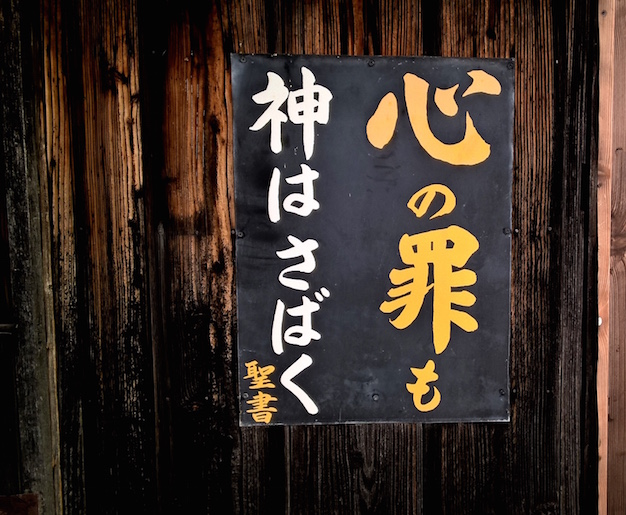 心の罪も
神はさばく
聖書